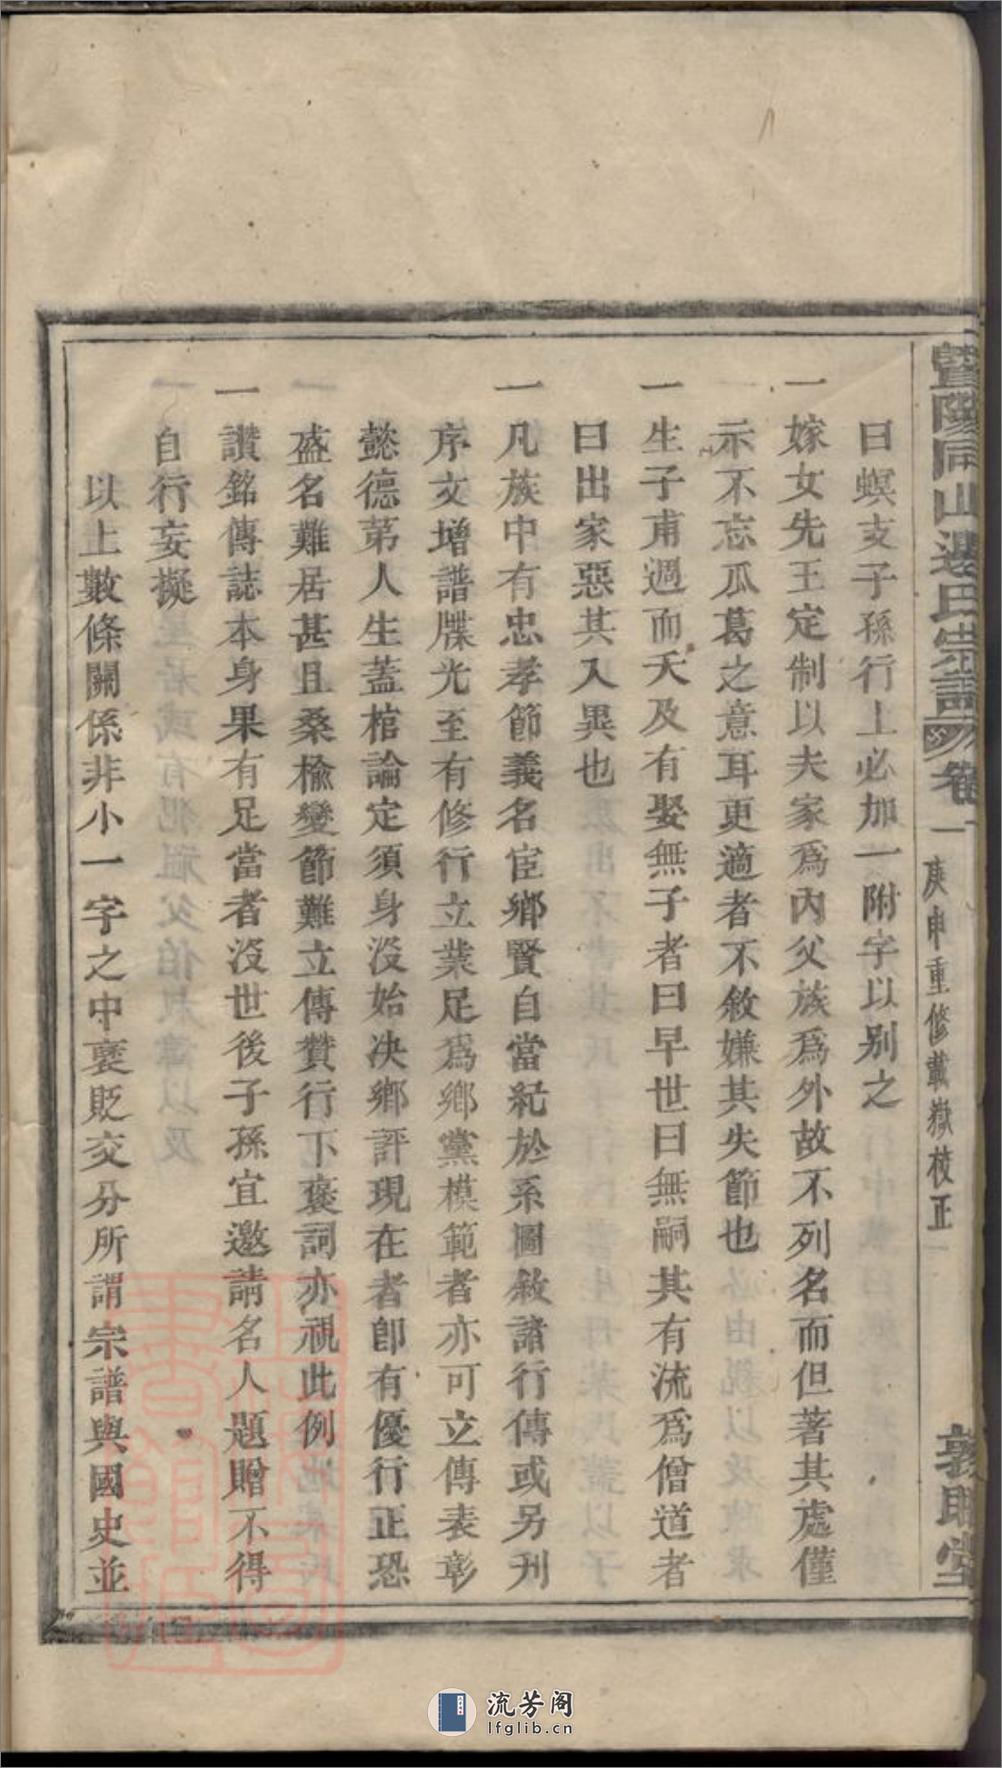 暨陽同山邊氏宗譜 卷一 庚申重修載嶽校正 敦睦堂
曰螟支子孫行上必加一附字以别之
一嫁女先王定制以夫家爲內父族爲外故不列名而但著其處僅
示不忘瓜葛之意耳更適者不敘嫌其失節也
一生子甫週而夭及有娶無子者曰早世曰無嗣其有流爲僧道者
曰出家惡其入異也
一凡族中有忠孝節義名宦鄉賢自當紀於系圖敘諸行傳或另刋
序文增譜牒光至有修行立業足爲鄉黨模範者亦可立傳表彰
懿德第人生蓋棺論定須身沒始决鄉評現在者卽有優行正恐
盛名難居甚且桑楡變節難立傳贊行下褒詞亦視此例
一讃銘傳誌本身果有足當者沒世後子孫宜邀請名人題贈不得
自行妄擬
以上數條關係非小一字之中襃貶交分所謂宗譜與國史並
流芳阁
lfglib.cn